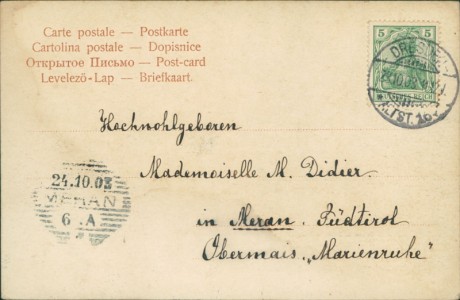 Carte postale — Postkarte
Cartolina postale — Dopisnice
Открытое Письмо — Post-card
Levelező-Lap — Briefkaart.
5 5
DRESDEN
ALTST. 16
REICH
Hochwohlgeboren
Mademoiselle M. Didier.
in Meran. Südtirol
Obermais „Marienruhe"
24.10.03
MERAN
6. A